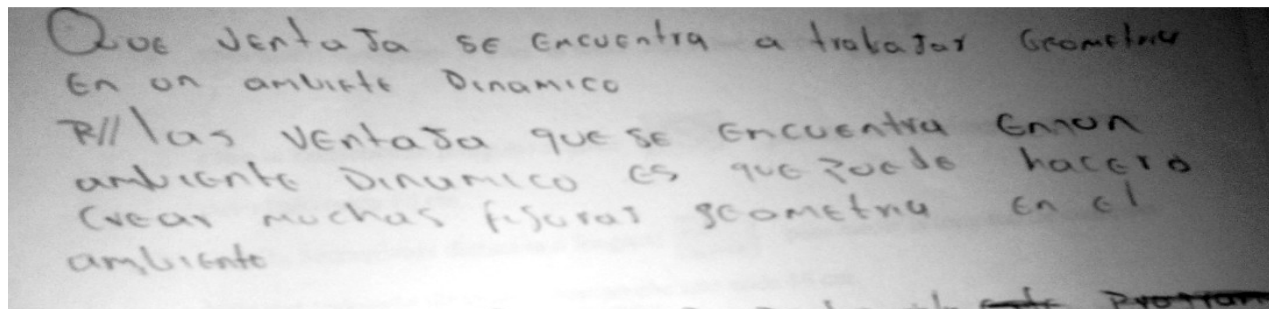 Que ventaja se encuentra a trabajar Geometria
En un ambiete Dinamico
R// las ventaja que se encuentra en un
ambiente Dinamico es que puede hacer o
Crear muchas figuras geometria en el
ambiente